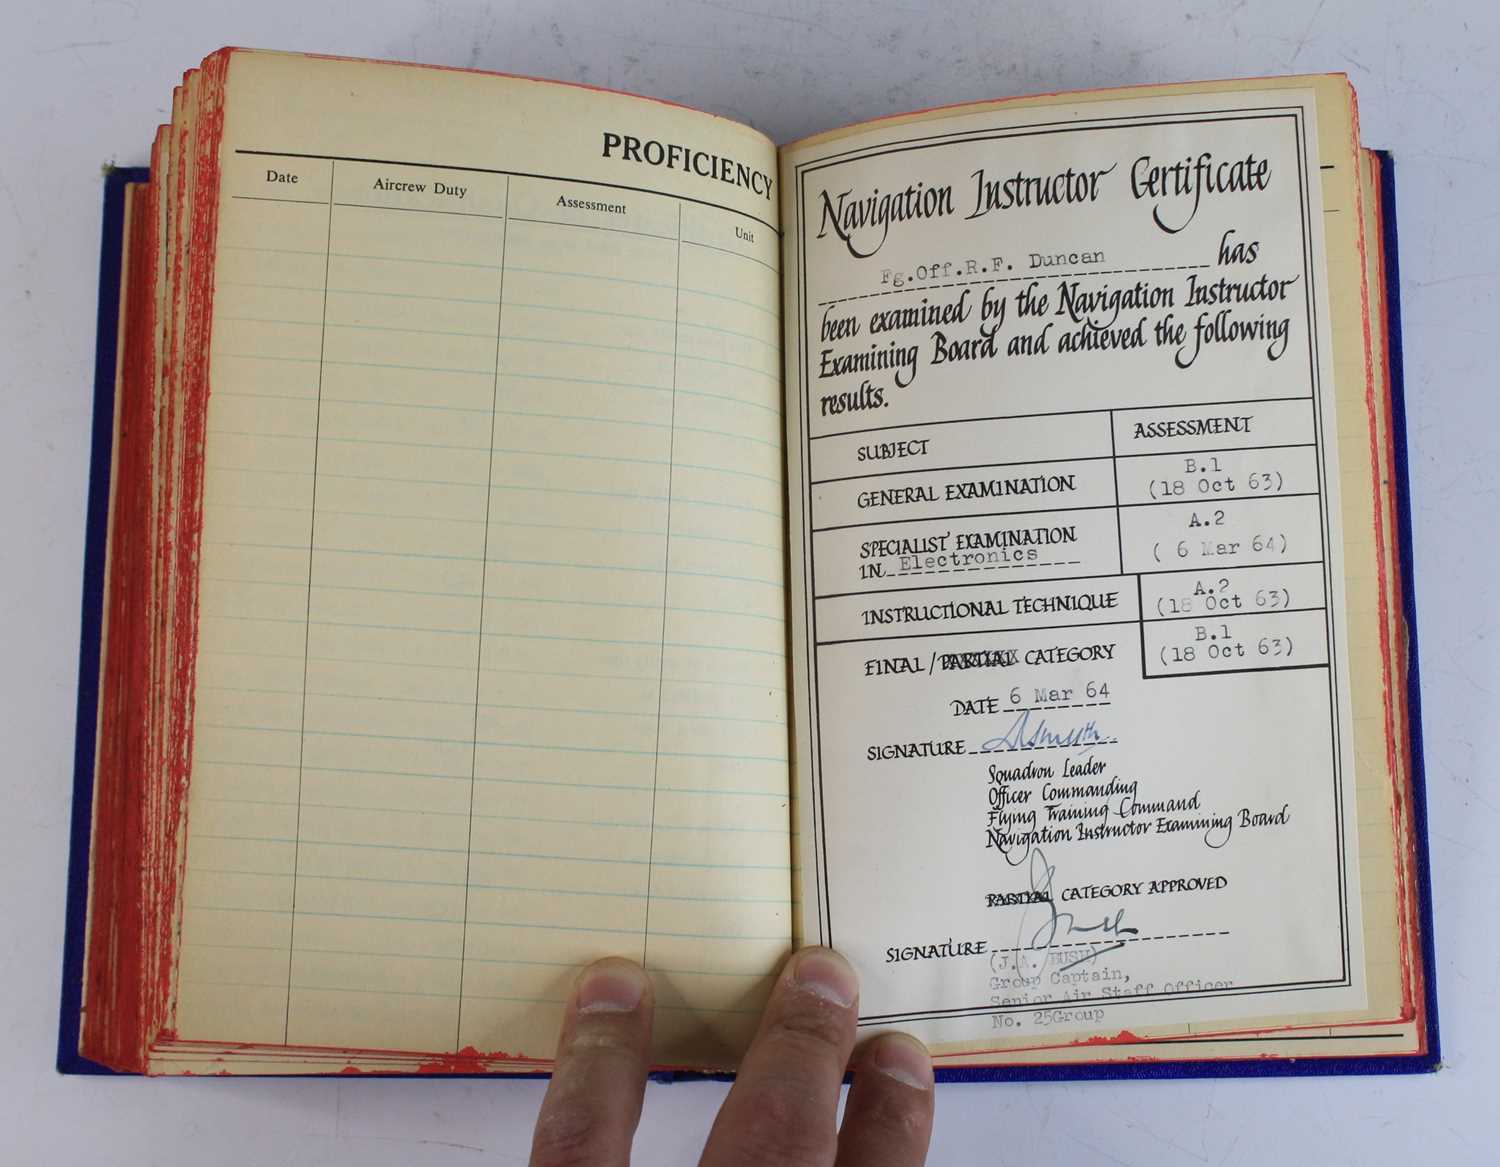 PROFICIENCY
Date Aircrew Duty Assessment Unit
Navigation Instructor Certificate
Fg.Off.R.F. Duncan has
been examined by the Navigation Instructor
Examining Board and achieved the following
results.
SUBJECT ASSESSMENT
GENERAL EXAMINATION B.1
(18 Oct 63)
SPECIALIST EXAMINATION A.2
IN Electronics ( 6 Mar 64)
INSTRUCTIONAL TECHNIQUE A.2
(18 Oct 63)
FINAL / PARTIAL CATEGORY B.1
(18 Oct 63)
DATE 6 Mar 64
SIGNATURE
Squadron Leader
Officer Commanding
Flying Training Command
Navigation Instructor Examining Board
PARTIAL CATEGORY APPROVED
SIGNATURE
(J.A. BUSH)
Group Captain,
Senior Air Staff Officer
No. 25Group